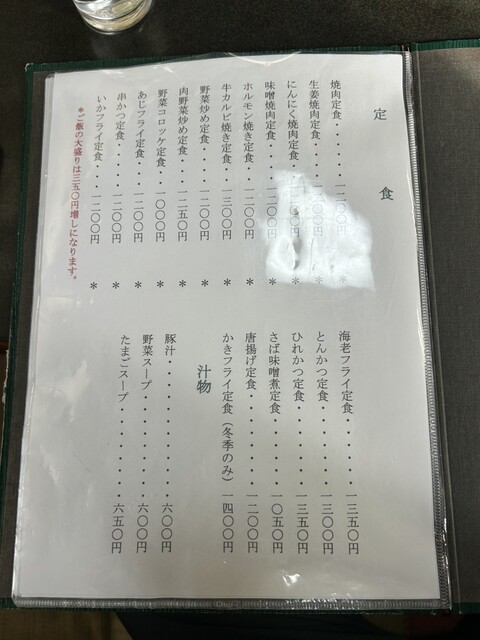 定食
焼肉定食・・・・・・一二〇〇円
生姜焼肉定食・・・・
にんにく焼肉定食・・・
味噌焼肉定食・・・・一二〇〇円
ホルモン焼き定食・・・一二〇〇円
牛カルビ焼き定食・・・一三〇〇円
野菜炒め定食・・・・一二〇〇円
肉野菜炒め定食・・・一二五〇円
野菜コロッケ定食・・・一〇〇〇円
あじフライ定食・・・・一二〇〇円
串かつ定食・・・・・・一二〇〇円
いかフライ定食・・・一二〇〇円
*ご飯の大盛りは三五〇円増しになります。
* * * * * * * * * * * *
海老フライ定食・・・・・・・一三五〇円
とんかつ定食・・・・・・・・一三〇〇円
ひれかつ定食・・・・・・・・一三五〇円
さば味噌煮定食・・・・・・・一〇五〇円
唐揚げ定食・・・・・・・・・一二〇〇円
かきフライ定食(冬季のみ)一四〇〇円
汁物
豚汁・・・・・・・・・・・六〇〇円
野菜スープ・・・・・・・・六〇〇円
たまごスープ・・・・・・・・六五〇円